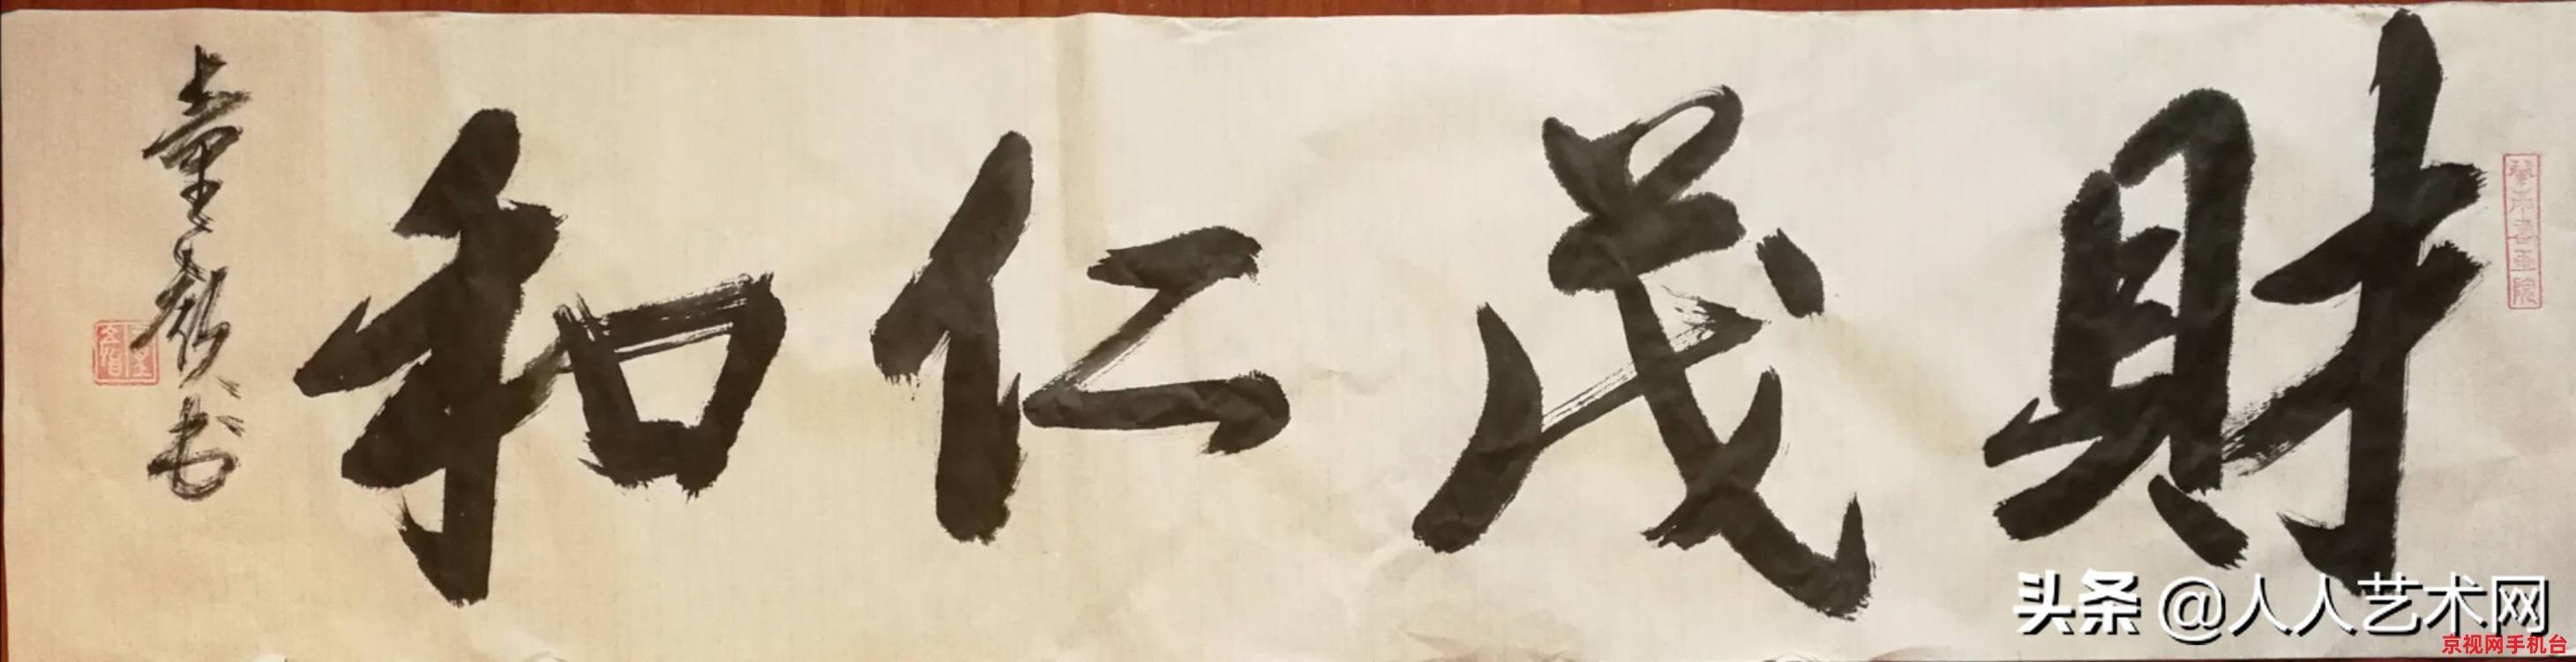 財茂仁和
童教书
头条 @人人艺术网
京视网手机台